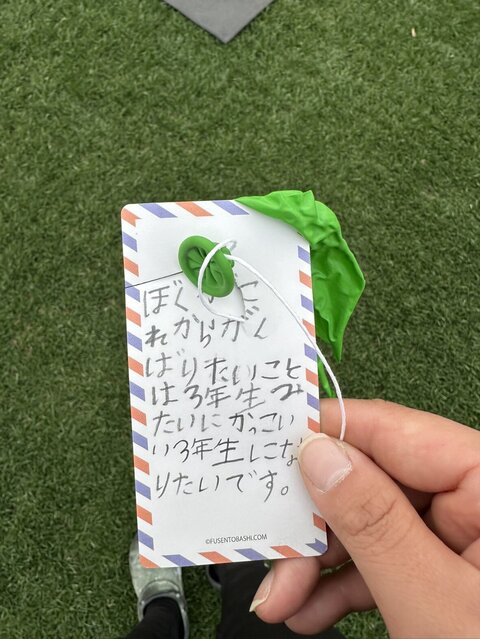 ぼく こ
れからがん
ばりたいこと
は3年生み
たいにかっこい
い3年生にな
りたいです。
©FUSENTOBASHI.COM